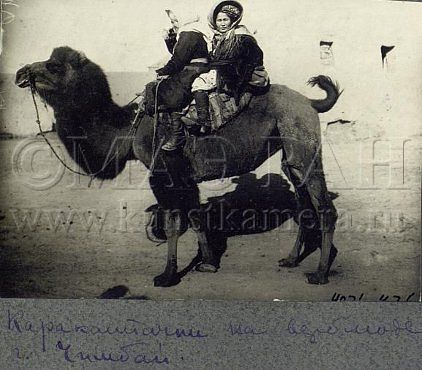 ©МАЭ РАН
www.kunstkamera.ru
Каракалпачки на верблюде
г. Чимбай